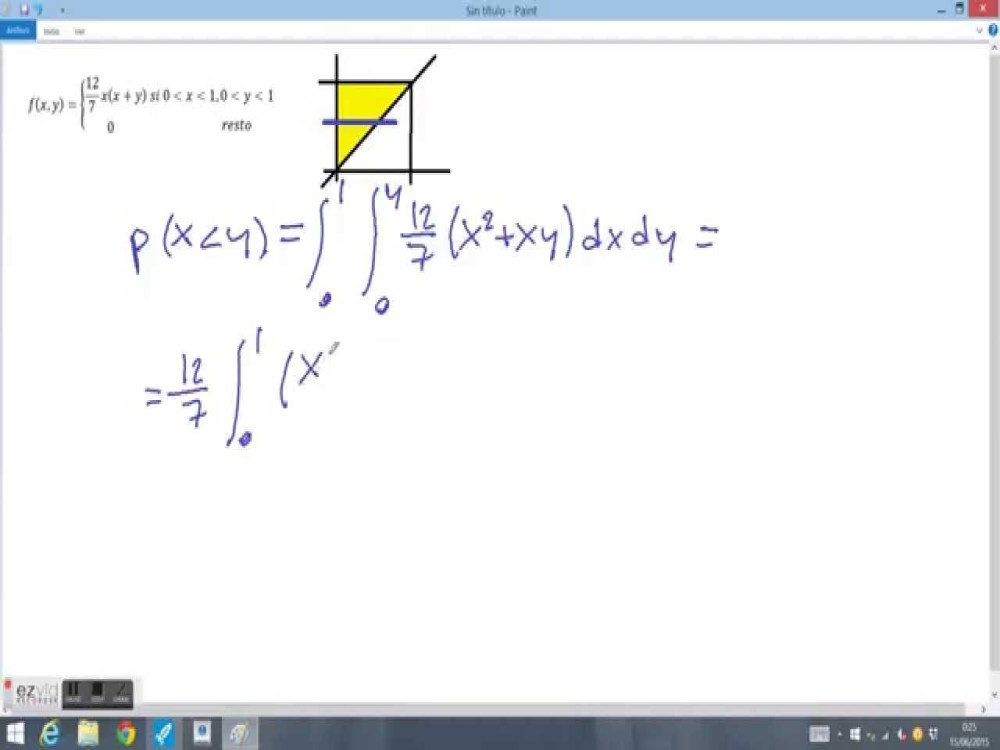 Sin título - Paint
Archivo Inicio Ver
f(x, y) = { 12/7 x(x + y) si 0 < x < 1, 0 < y < 1
0 resto
p(x<y) = ∫₀¹ ∫₀^y 12/7 (x²+xy) dx dy =
= 12/7 ∫₀¹ (x
ezvid
RECORDER
0:25
15/06/2015